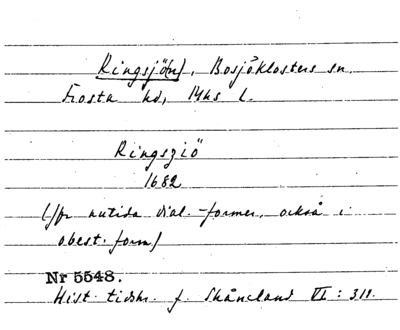 Ringsjö(n), Bosjöklosters sn.
Frosta hd, Mhs l.
Ringsziö
1682
(Jfr nutida dial.-former, också i
obest. form)
Nr 5548.
Hist. tidskr. f. Skåneland VI: 311.